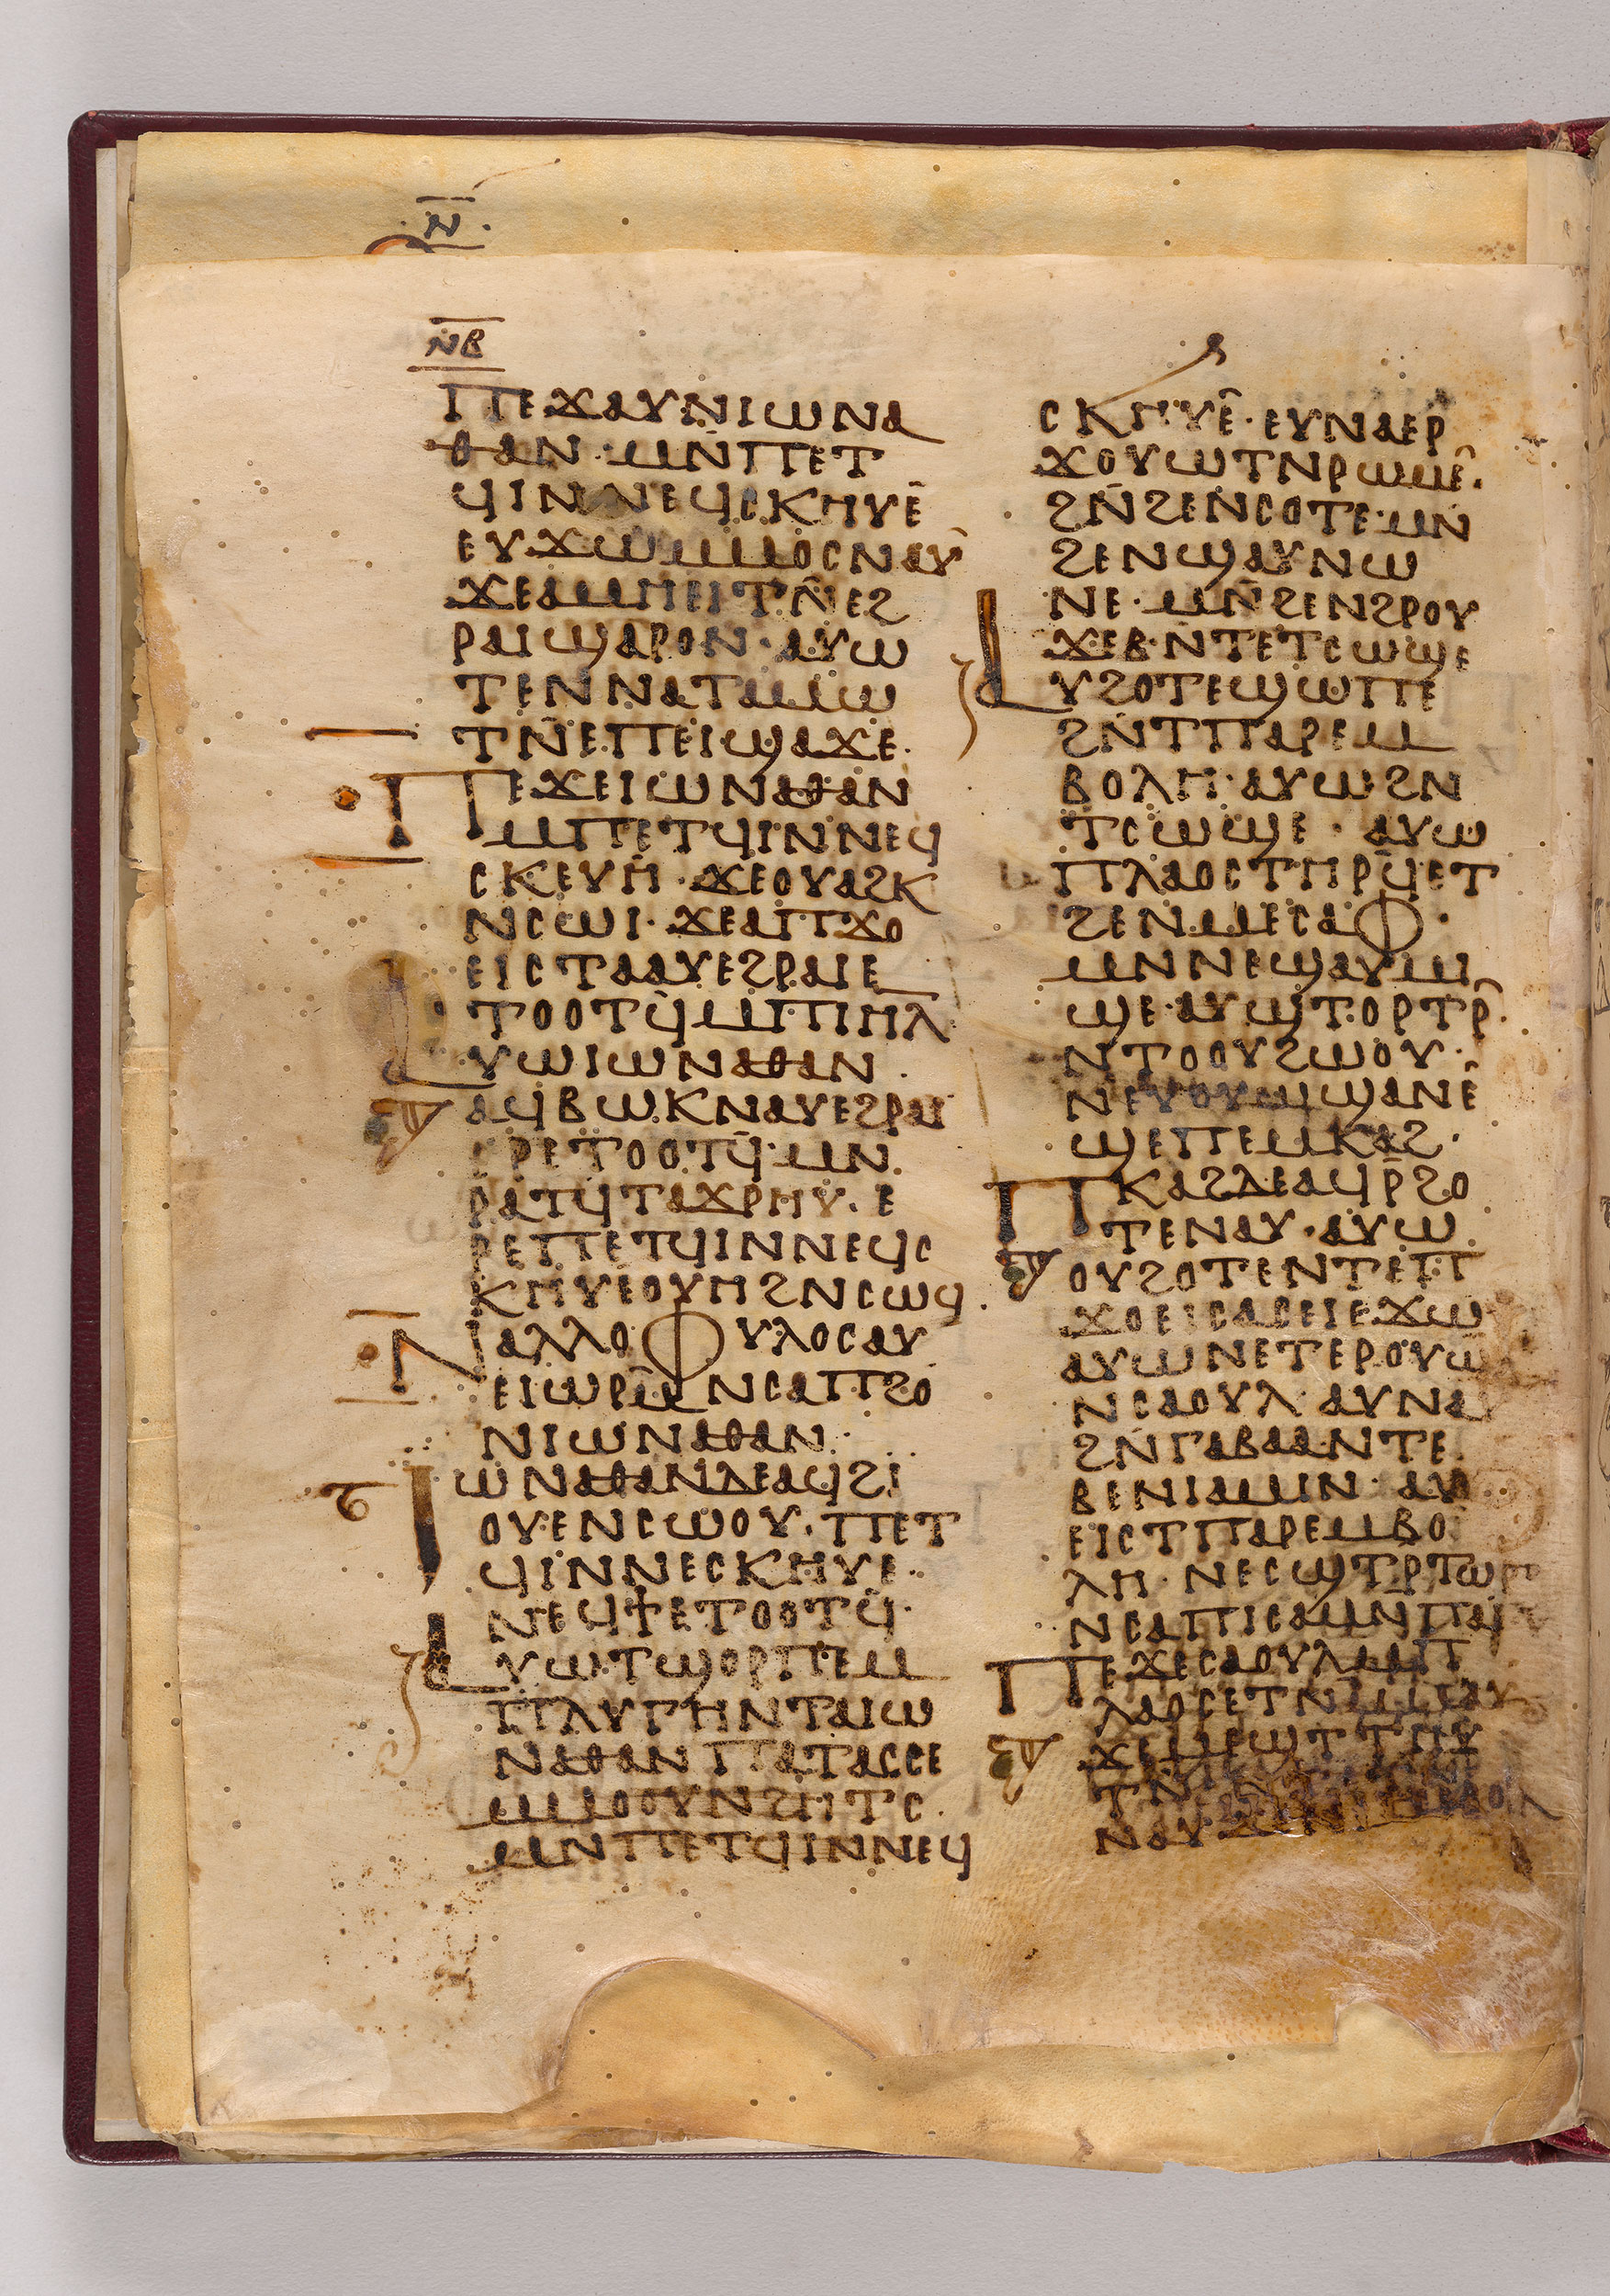 ⲛ̅
ⲛⲃ
ⲡⲉϫⲁⲩⲛⲓⲱⲛⲁ
ⲑⲁⲛ· ⲙⲛ̅ⲡⲉⲧ
ϥⲓⲛⲛⲉϥⲥⲕⲏⲩⲉ̂
ⲉⲩϫⲱⲙⲙⲟⲥⲛⲁⲩ
ϫⲉⲁⲙⲏⲉⲓⲧⲛ̅ⲉϩ
ⲣⲁⲓϣⲁⲣⲟⲛ· ⲁⲩⲱ
ⲧⲉⲛⲛⲁⲧⲁⲙⲱ
ⲧⲛ̅ⲉⲡⲉⲓϣⲁϫⲉ·
ⲡⲉϫⲉⲓⲱⲛⲁⲑⲁⲛ
ⲙⲡⲉⲧϥⲓⲛⲛⲉϥ
ⲥⲕⲉⲩⲏ· ϫⲉⲟⲩⲁϩⲕ
ⲛⲥⲱⲓ· ϫⲉⲁⲡϫⲟ
ⲉⲓⲥⲧⲁⲁⲩⲉϩⲣⲁⲓⲉ
ⲧⲟⲟⲧϥⲙⲡⲓⲏⲗ
ⲁⲩⲱⲓⲱⲛⲁⲑⲁⲛ
ⲁϥⲃⲱⲕⲛⲁⲩⲉϩⲣⲁⲓ
ⲉⲣⲉⲧⲟⲟⲧϥ· ⲙⲛ
ⲣⲁⲧϥⲧⲁϫⲣⲏⲩ· ⲉ
ⲣⲉⲡⲉⲧϥⲓⲛⲛⲉϥⲥ
ⲕⲏⲩⲉⲟⲩⲏϩⲛⲥⲱϥ·
ⲛⲁⲗⲗⲟⲫⲩⲗⲟⲥⲁⲩ
ⲉⲓⲱⲣⲙ̅ⲛⲥⲁⲡϩⲟ
ⲛⲓⲱⲛⲁⲑⲁⲛ·
ⲓⲱⲛⲁⲑⲁⲛⲇⲉⲁϥϩⲓ
ⲟⲩⲉⲛⲥⲱⲟⲩ· ⲡⲉⲧ
ϥⲓⲛⲛⲉⲥⲕⲏⲩⲉ·
ⲛⲉϥϯⲉⲧⲟⲟⲧϥ̅·
ⲁⲩⲱⲧϣⲟⲣⲡⲉⲙ
ⲡⲗⲩⲅⲏⲛⲧⲁⲓⲱ
ⲛⲁⲑⲁⲛⲡⲁⲧⲁⲥⲥⲉ
ⲙⲙⲟⲟⲩⲛϩⲏⲧⲥ·
ⲙⲛⲡⲉⲧϥⲓⲛⲛⲉϥ
ⲥⲕⲏⲩⲉ̂· ⲉⲩⲛⲁⲉⲣ
ϫⲟⲩⲱⲧⲛⲣⲱⲙⲉ̂·
ϩⲛ̅ϩⲉⲛⲥⲟⲧⲉ· ⲙⲛ
ϩⲉⲛϣⲁⲩⲛⲱ
ⲛⲉ· ⲙⲛ̅ϩⲉⲛϩⲣⲟⲩ
ϫⲉⲃ·ⲛⲧⲉⲧⲥⲱϣⲉ
ⲁⲩϩⲟⲧⲉϣⲱⲡⲉ
ϩⲛ̅ⲧⲡⲁⲣⲉⲙ
ⲃⲟⲗⲏ· ⲁⲩⲱϩⲛ
ⲧⲥⲱϣⲉ· ⲁⲩⲱ
ⲡⲗⲁⲟⲥⲧⲏⲣϥ̅ⲉⲧ
ϩⲉⲛⲙⲉⲥⲁⲫ·
ⲙⲛⲛⲉϣⲁⲩⲙ
ϣⲉ·ⲁⲩϣⲧⲟⲣⲧⲣ̂·
ⲛⲧⲟⲟⲩϩⲱⲟⲩ·
ⲛⲉⲩⲟⲩⲱϣⲁⲛⲉ̂
ϣⲉⲡⲉⲙⲕⲁϩ·
ⲡⲕⲁϩⲇⲉⲁϥⲣ̅ϩⲟ
ⲧⲉⲛⲁⲩ· ⲁⲩⲱ
ⲟⲩϩⲟⲧⲉⲛⲧⲉⲡ
ϫⲟⲉⲓⲥⲁⲥⲉⲓⲉϫⲱ
ⲁⲩⲱⲛⲉⲧⲉⲣⲟⲩⲱ
ⲛⲥⲁⲟⲩⲗ· ⲁⲩⲛⲁ
ϩⲛ̅ⲅⲁⲃⲁⲁ·ⲛⲧⲉ
ⲃⲉⲛⲓⲁⲙⲓⲛ· ⲁⲩ
ⲉⲓⲥⲧⲡⲁⲣⲉⲙⲃⲟ
ⲗⲏ· ⲛⲉⲥϣⲧⲣⲧⲱⲣ
ⲛⲥⲁⲡⲓⲥⲁⲙⲛⲡⲁⲓ
ⲡⲉϫⲉⲥⲁⲟⲩⲗⲙⲡ
ⲗⲁⲟⲥⲉⲧⲛⲙⲙⲁⲩ
ϫⲉⲙⲉϣⲧⲧⲏⲩ
ⲧⲛ
ⲛⲁⲩ